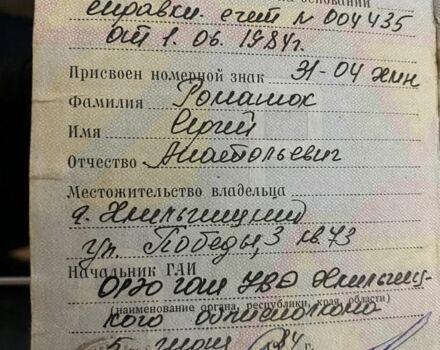 основании
справки. счет № 004435
от 1.06.1984г.
Присвоен номерной знак 31-04 хмн
Фамилия Ромашок
Имя Сергей
Отчество Анатольевич
Местожительство владельца
г. Хмельницкий
ул. Победы, 3 кв. 73
Начальник ГАИ
ОГАИ УВД Хмельниц-
(наименование органа, республики, края, области)
кого облисполкома
5 июня 1984 г.